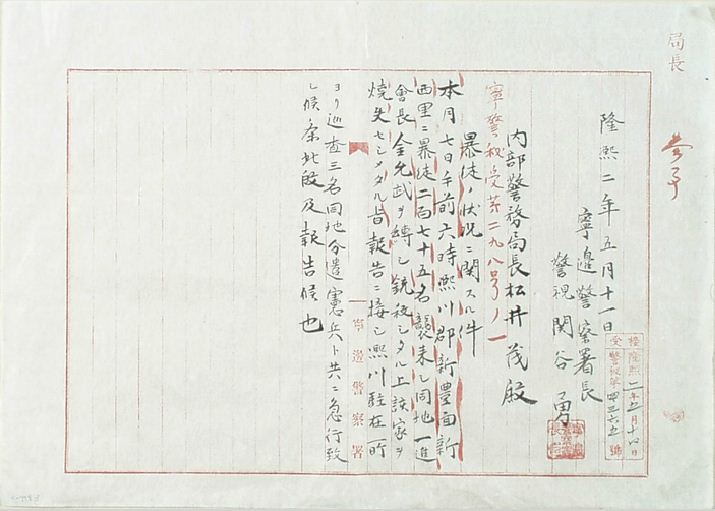 局長
隆熙二年五月十一日
寧邊警察署長
警視 関谷 勇
内部警務局長松井茂殿
寧警秘受第二九八号ノ一
暴徒ノ状況ニ関スル件
本月七日午前六時熙川郡新豊面新
西里ニ暴徒二百七十五名襲来シ同地一進
會長金允武ヲ縛シ銃殺シタル上該家ヲ
焼失セシメタル旨報告ニ接シ熙川駐在所
ヨリ巡査三名同地分遣憲兵ト共ニ急行致
シ候条此段及報告候也
寧邊警察署
接隆熙二年五月十八日
受警秘第四三六五號